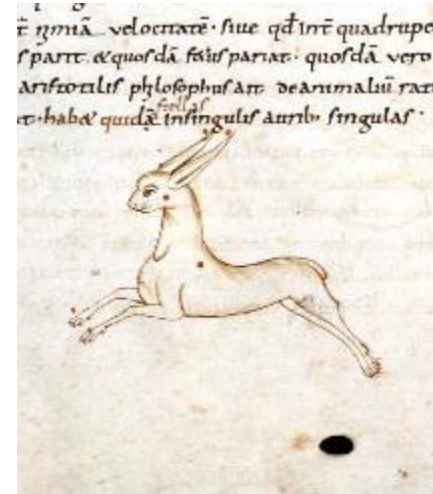 nimiā velocitatē · sive qđ int quadrupe
parit · & quosdā pariat · quosdā vero
aristotilis phylosophus ait de animaliū rat
stellas
hab& quidē in singulis aurib; singulas ·